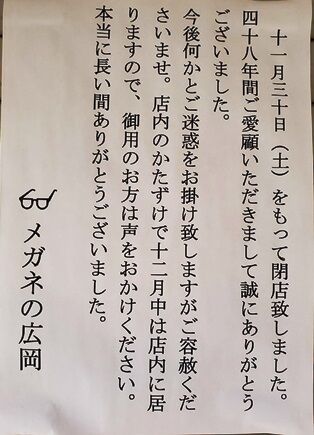 十一月三十日（土）をもって閉店致しました。
四十八年間ご愛顧いただきまして誠にありがとう
ございました。
今後何かとご迷惑をお掛け致しますがご容赦くだ
さいませ。店内のかたずけで十二月中は店内に居
りますので、御用のお方は声をおかけください。
本当に長い間ありがとうございました。
メガネの広岡